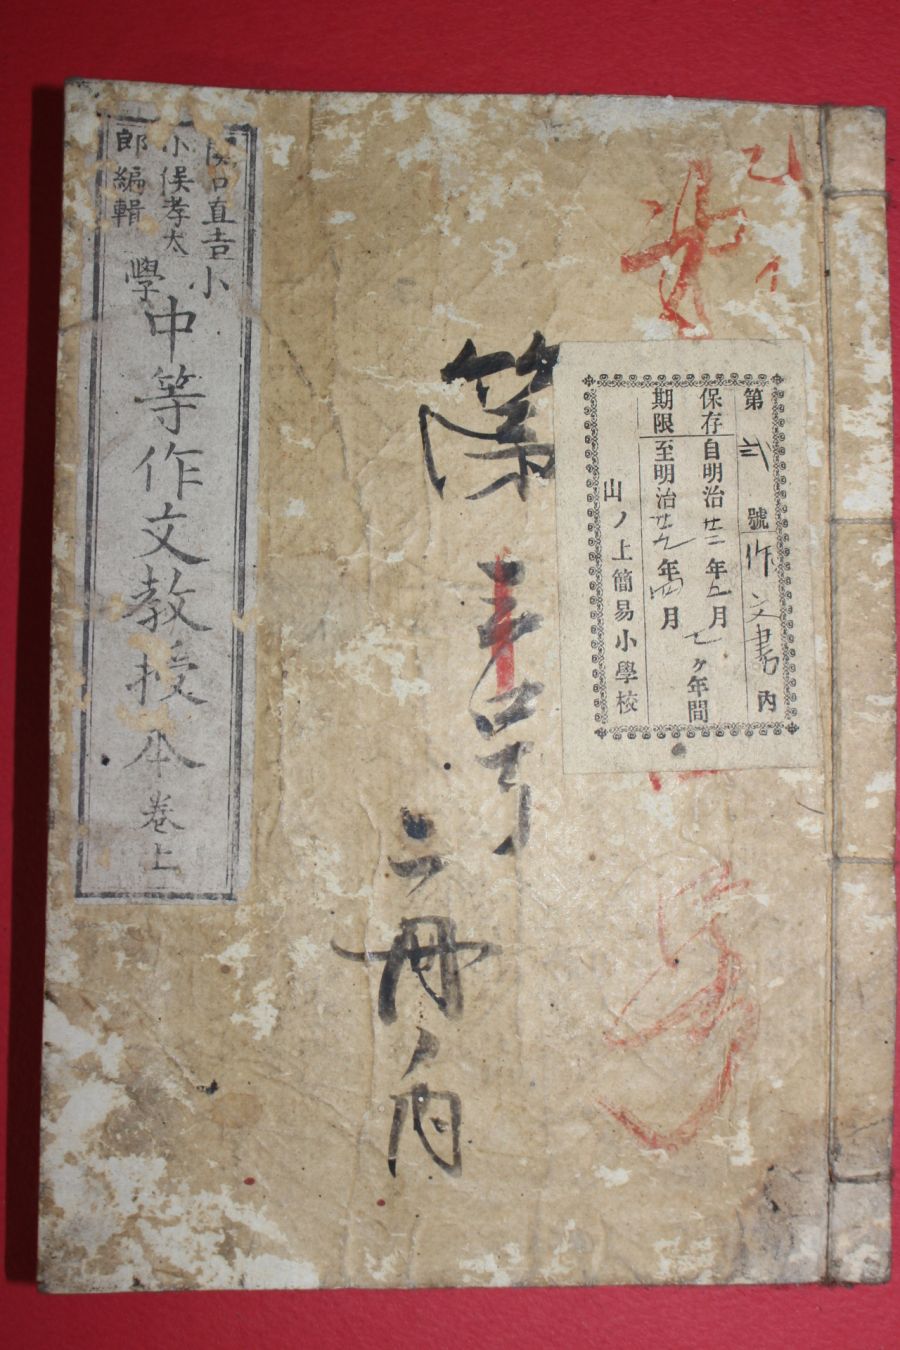 乙
第
號
作文書
内
保存
自明治廿三年五月
七ヶ年間
期限
至明治廿九年四月
山ノ上簡易小學校
第
号
二冊ノ内
口直吉
小俣孝太
郎編輯
小學
中等作文教授本
卷上